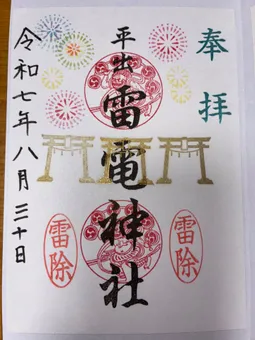 奉拝
平出
雷電神社
雷除
雷除
令和七年八月三十日